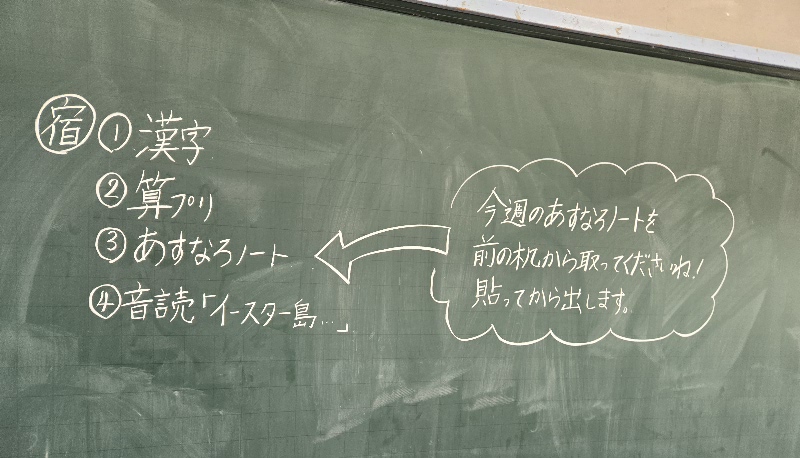 宿 ① 漢字
② 算プリ
③ あすなろノート
④ 音読「イースター島…」
今週のあすなろノートを
前の机から取ってくださいね!
貼ってから出します。